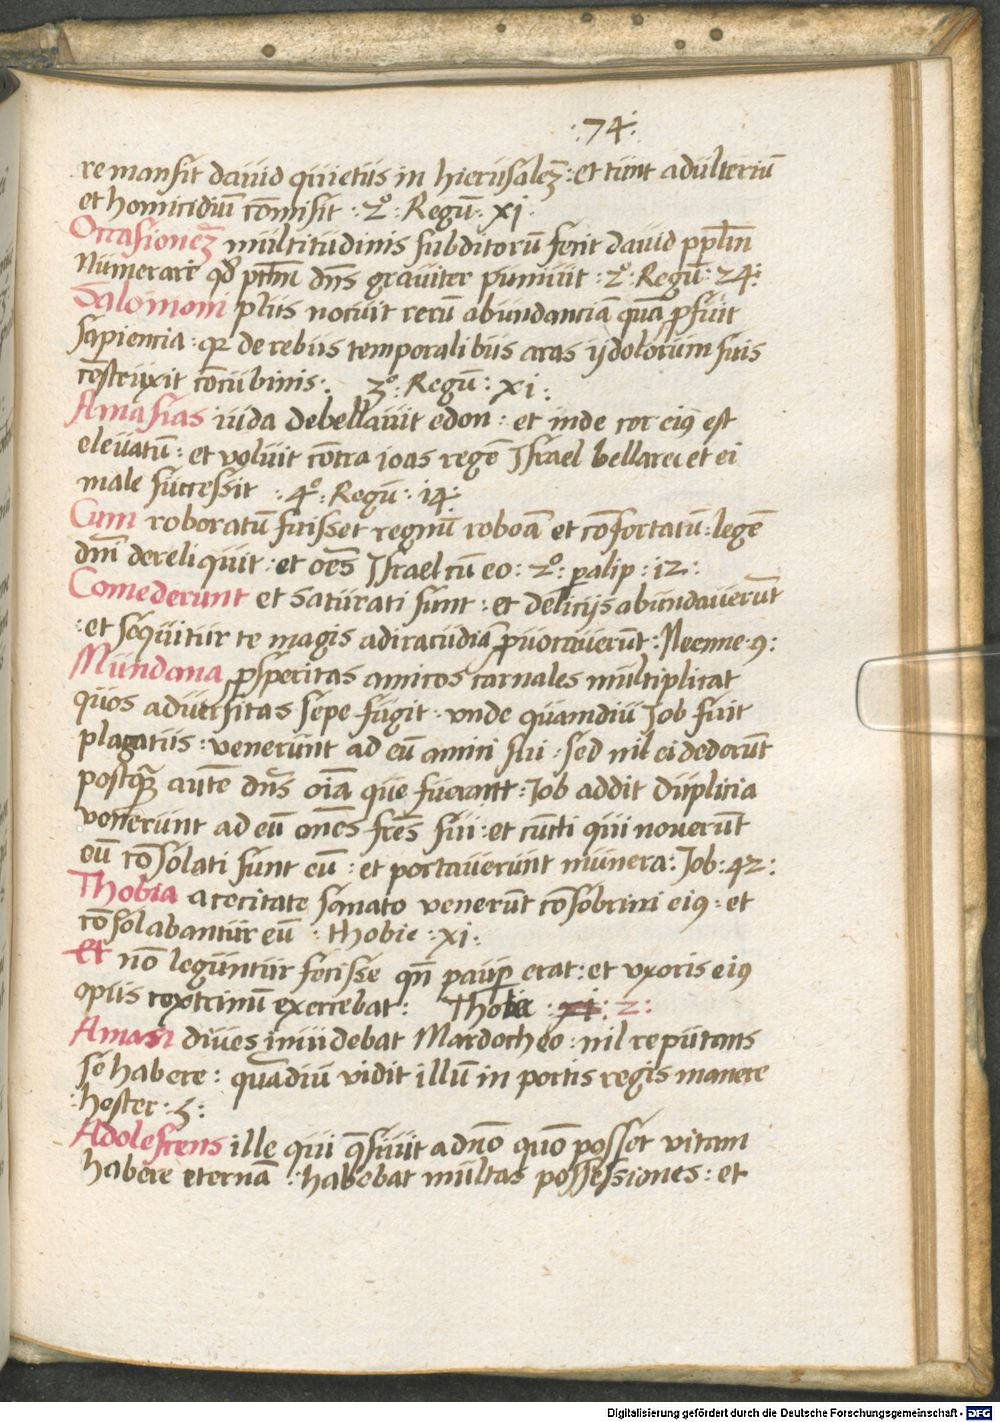 :74:
remansit dauid quietus in hierusalez : et tunt adulteriū
et homicidiū cōmisit : 2° : Regū : xj :
Occasionez multitudinis subditorū fecit dauid ppl̄m
Numerare qđ pctm̄ dn̄s grauiter puniuit : 2° : Regū : 24 :
Salomoni plus nocuit rerū abundanciā quā profuit
sapiencia : qr de rebus temporalibus aras ydolorum suis
cōstruxit cōcubinis : 3° : Regū : xj :
Amasias iuda debellauit edon : et inde cor eiꝯ est
eleuatū : et voluit cōtra joas regē Israel bellare et ei
male successit : 4° : Regū : 14 :
Cum roboratū fuisset regnū roboā et cōfortatū : legē
dn̄i dereliquit : et oēs Israel cū eo : 2° : palip : 12 :
Comederunt et saturati sunt : et delicijs abundauerūt
: et sequitur te magis ad iracūdiā prouocauerūt : Neemie 9 :
Mundana prosperitas amicos carnales multiplicat
quos aduersitas sepe fugit : vnde quamdiū Job fuit
plagatus : venerunt ad eū amici sui : sed nil ei dederūt
postquā autē dn̄s oīa que fuerant : Job addit duplicia
venerunt ad eū om̄es frēs sui : et cūcti qui nouerūt
eū cōsolati sunt eū : et portauerunt munera : Job : 42 :
Thobia a cecitate sanato venerūt cōsobrini eiꝯ : et
cōsolabantur eū : thobie : xj :
Et nō leguntur fecisse qn̄ paup erat : et vxoris eiꝯ
opus textrinū exercebat : Thobie : xj : 2 :
Aman diues inuidebat Mardocheo : nil reputans
se habere : quādiū vidit illū in portis regis manere
: hester : 5 :
Adolescens ille qui q̄siuit a dn̄o quō posset vitam
habere eternā : habebat multas possessiones : et
Digitalisierung gefördert durch die Deutsche Forschungsgemeinschaft - DFG